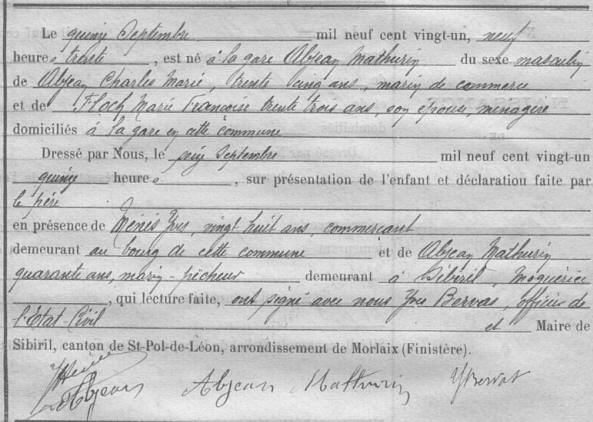 Le quinze Septembre mil neuf cent vingt-un, neuf
heures trente, est né à la gare Abjean Mathurin du sexe masculin
de Abjean Charles Marie, trente cinq ans, marin de commerce
et de Floch Marie Françoise trente trois ans, son épouse, ménagère
domiciliés à la gare en cette commune
Dressé par Nous, le seize Septembre mil neuf cent vingt-un
quinze heures, sur présentation de l'enfant et déclaration faite par
le père
en présence de Ménès Yves, vingt huit ans, commerçant
demeurant au bourg de cette commune et de Abjean Mathurin
quarante ans, marin-pêcheur demeurant à Sibiril, Moguériec
, qui lecture faite, ont signé avec nous Yves Bervas, officier de
l'Etat-Civil et Maire de
Sibiril, canton de St-Pol-de-Léon, arrondissement de Morlaix (Finistère).
Abjean Abjean Mathurin YBervas